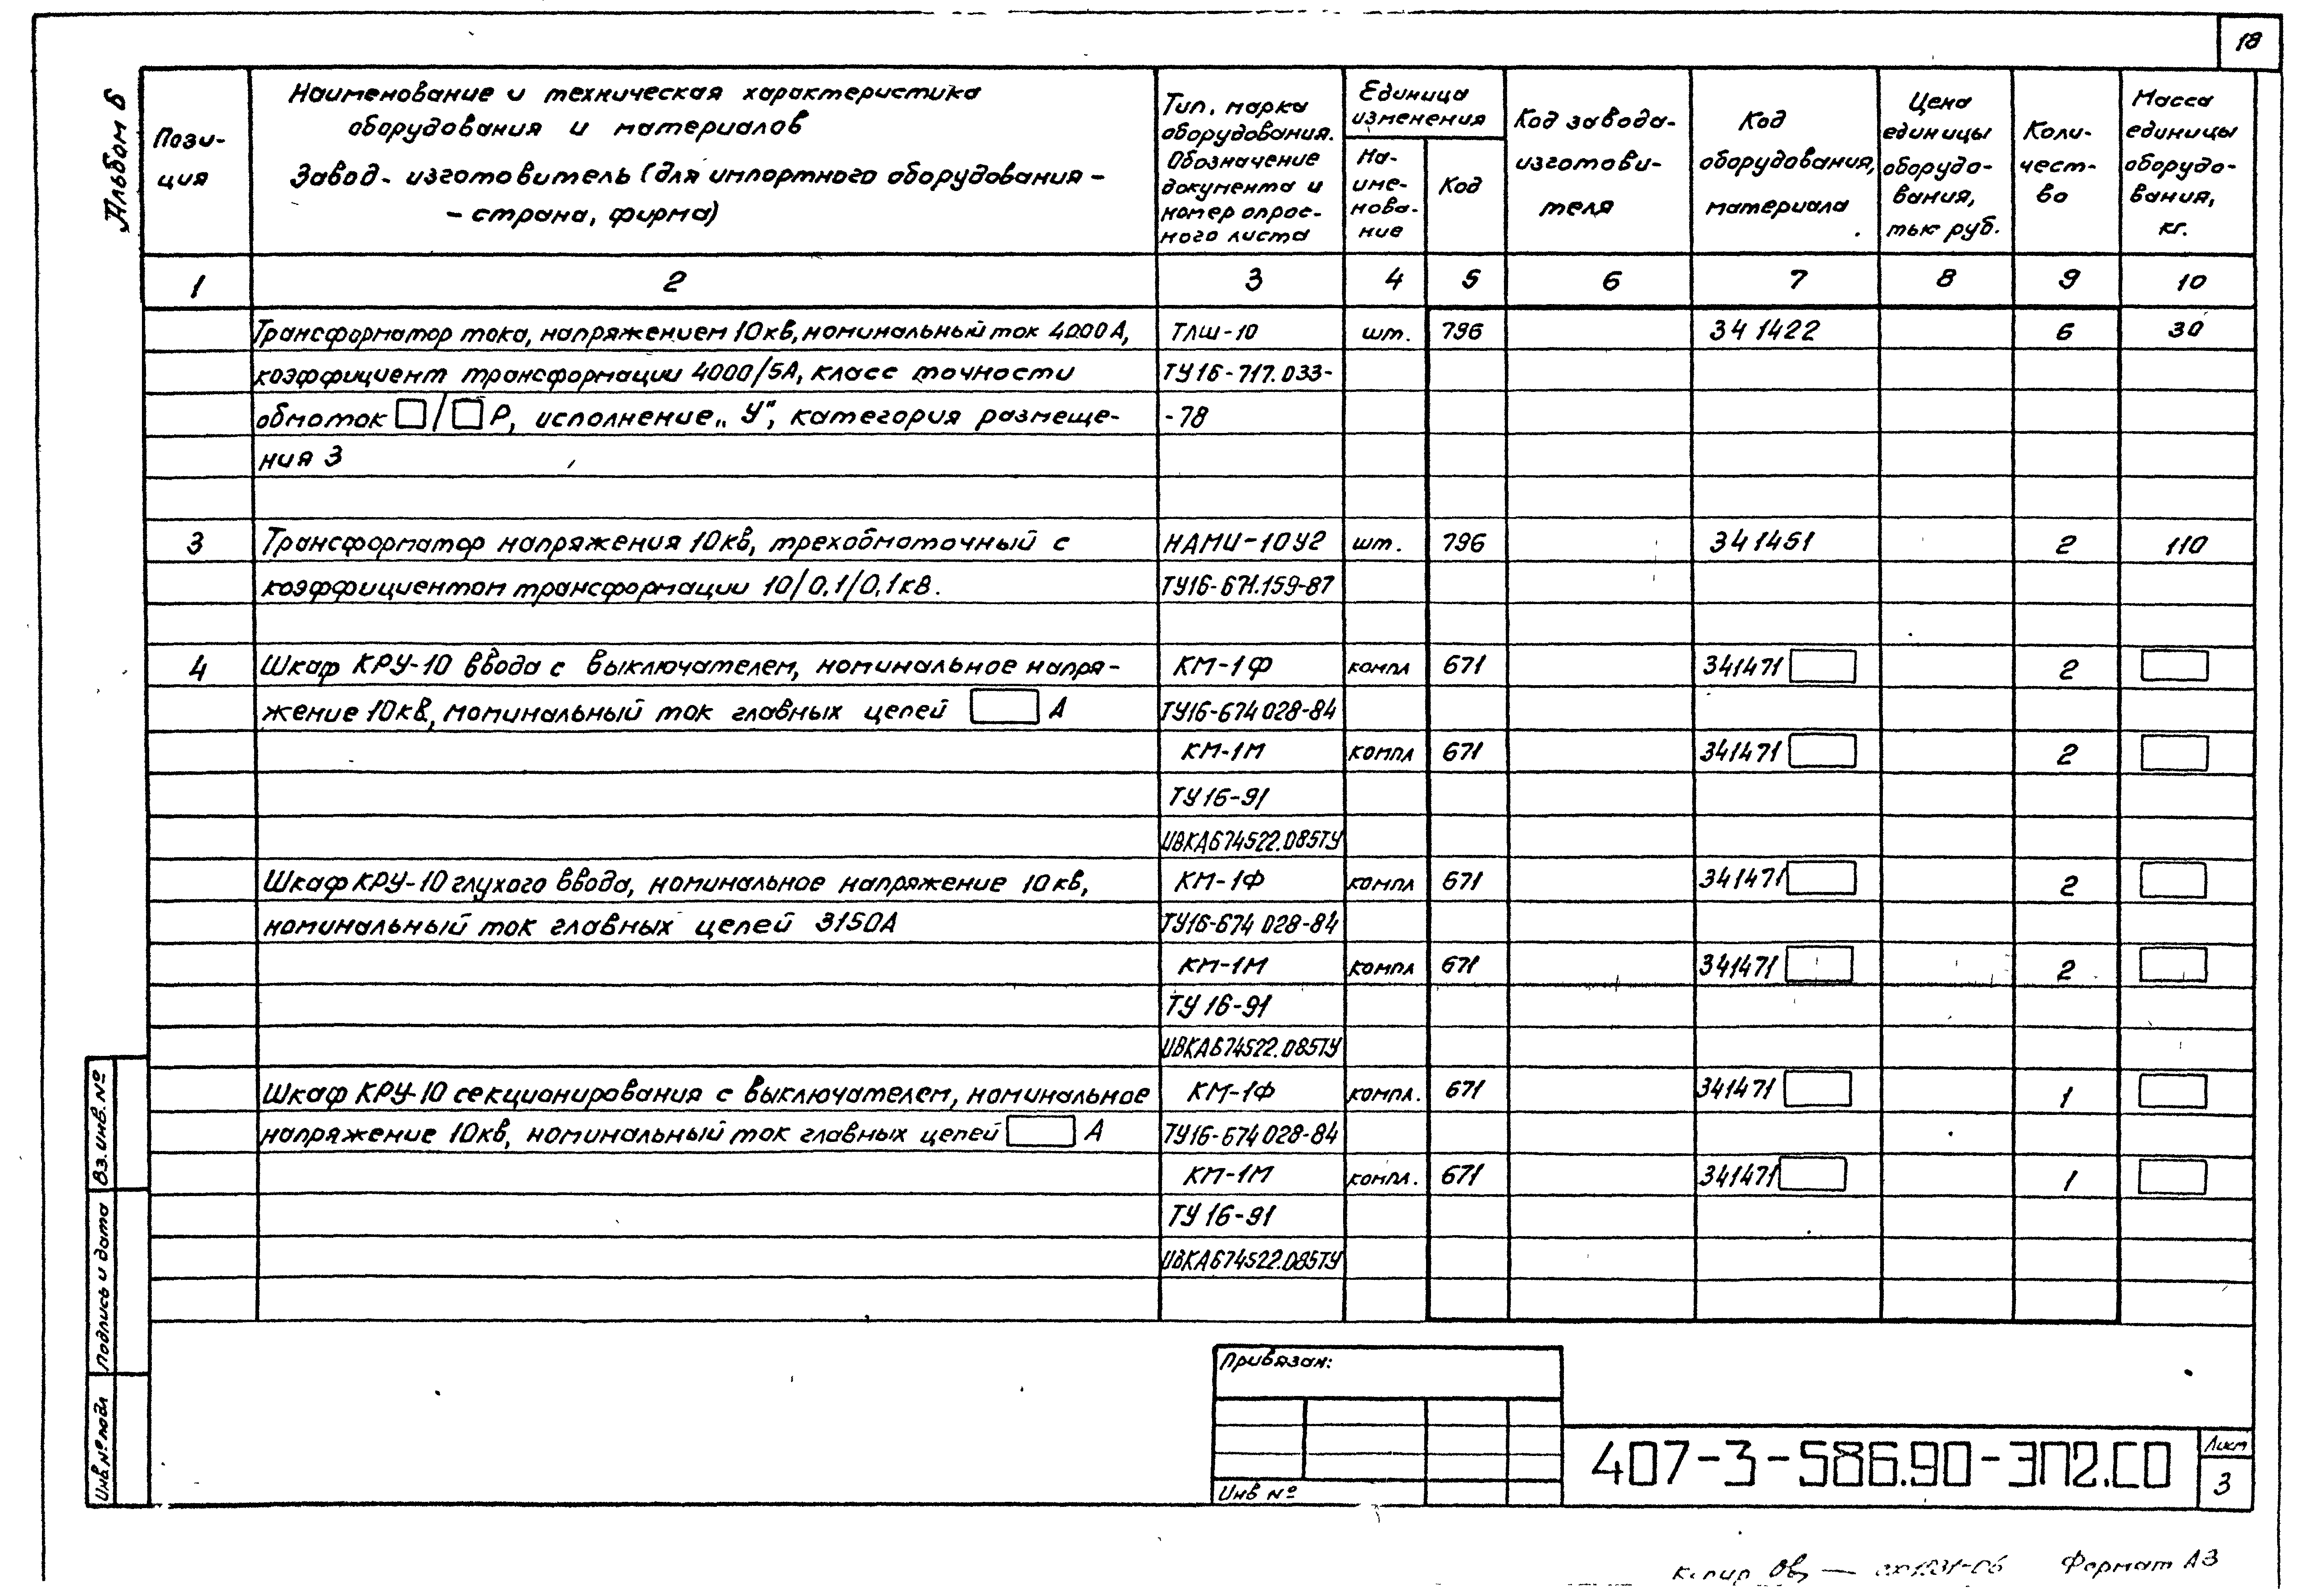 18
Альбом 6
Пози-
ция
Наименование и техническая характеристика
оборудования и материалов
Завод-изготовитель (для импортного оборудования -
- страна, фирма)
Тип, марка
оборудования.
Обозначение
документа и
номер опрос-
ного листа
Единица
изменения
На-
име-
нова-
ние
Код
Код завода-
изготови-
теля
Код
оборудования,
материала
Цена
единицы
оборудо-
вания,
тыс руб.
Коли-
чест-
во
Масса
единицы
оборудо-
вания,
кг.
1 2 3 4 5 6 7 8 9 10
Трансформатор тока, напряжением 10кв, номинальный ток 4000А, ТЛШ-10 шт. 796 341422 6 30
коэффициент трансформации 4000/5А, класс точности ТУ16-717.033-
обмоток □/□ Р, исполнение „У", категория размеще- -78
ния 3
3 Трансформатор напряжения 10кв, трехобмоточный с НАМИ-10У2 шт. 796 341451 2 110
коэффициентом трансформации 10/0,1/0,1кв. ТУ16-671.159-87
4 Шкаф КРУ-10 ввода с выключателем, номинальное напря- КМ-1Ф компл 671 341471 □ 2 □
жение 10кв, номинальный ток главных цепей □ А ТУ16-674 028-84
КМ-1М компл 671 341471 □ 2 □
ТУ 16-91
ИВКА674522.085ТУ
Шкаф КРУ-10 глухого ввода, номинальное напряжение 10кв, КМ-1Ф компл 671 341471 □ 2 □
номинальный ток главных цепей 3150А ТУ16-674 028-84
КМ-1М компл 671 341471 □ 2 □
ТУ 16-91
ИВКА674522.085ТУ
Шкаф КРУ-10 секционирования с выключателем, номинальное КМ-1Ф компл. 671 341471 □ 1 □
напряжение 10кв, номинальный ток главных цепей □ А ТУ16-674 028-84
КМ-1М компл. 671 341471 □ 1 □
ТУ 16-91
ИВКА674522.085ТУ
Вз. инв. №
Подпись и дата
Инв № подл
Привязан:
Инв №
407-3-586.90-ЭП2.СО
Лист
3
Копир
Формат А3